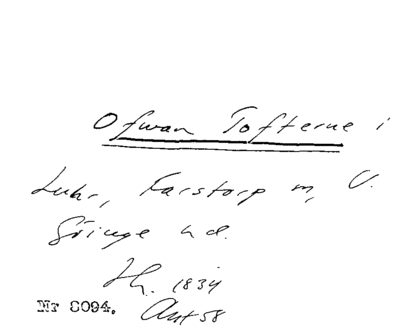 Ofwan Tofterne i
Luhr, Farstorp m, V.
Göinge hd.
Jh. 1834
Nr 8094. Akt 58